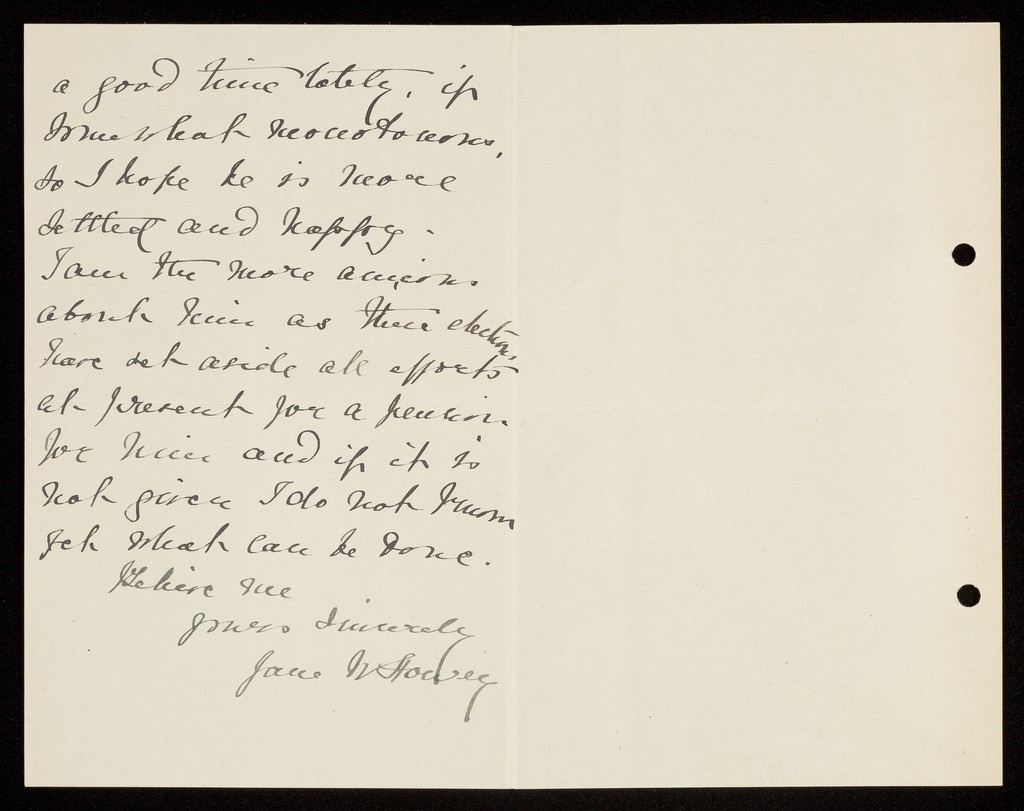 a good time lately, if
somewhat monotonous,
so I hope he is more
settled and happy.
I am the more anxious
about him as these elections
have set aside all efforts
at present for a pension
for him and if it is
not given I do not know
yet what can be done.
Believe me
yours sincerely
Jane W